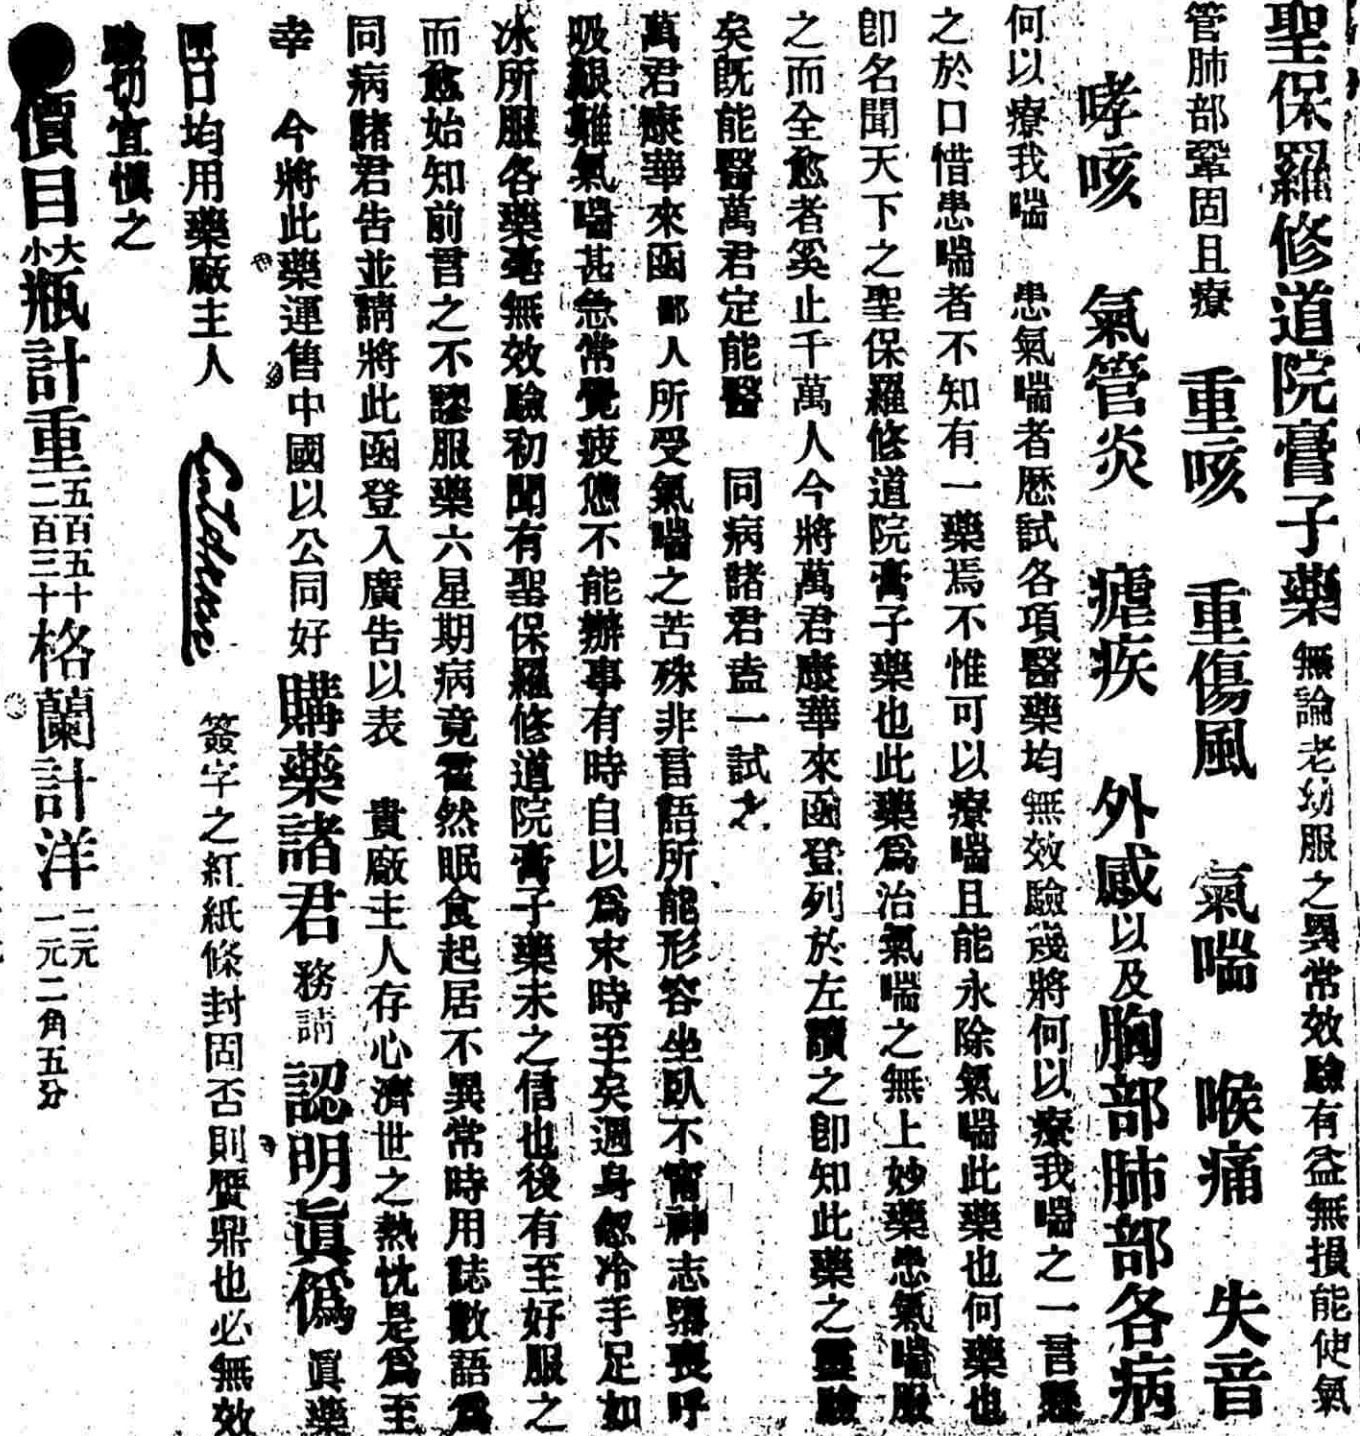 聖保羅修道院膏子藥無論老幼服之異常效驗有益無損能使氣
管肺部鞏固且療 重咳 重傷風 氣喘 喉痛 失音
哮咳 氣管炎 瘧疾 外感以及胸部肺部各病
何以療我喘 患氣喘者歷試各項醫藥均無效驗幾將何以療我喘之一言懸
之於口惜患喘者不知有一藥焉不惟可以療喘且能永除氣喘此藥也何藥也
卽名聞天下之聖保羅修道院膏子藥也此藥爲治氣喘之無上妙藥患氣喘服
之而全愈者奚止千萬人今將萬君康華來函登列於左讀之卽知此藥之靈驗
矣旣能醫萬君定能醫 同病諸君盍一試之
萬君康華來函 鄙人所受氣喘之苦殊非言語所能形容坐臥不甯神志沮喪呼
吸艱難氣喘甚急常覺疲憊不能辦事有時自以爲末時至矣週身忽冷手足如
冰所服各藥毫無效驗初聞有聖保羅修道院膏子藥未之信也後有至好服之
而愈始知前言之不謬服藥六星期病竟霍然眠食起居不異常時用誌數語爲
同病諸君告並請將此函登入廣告以表 貴廠主人存心濟世之熱忱是爲至
幸 今將此藥運售中國以公同好 購藥諸君 務請 認明眞僞 眞藥
匣口均用藥廠主人 簽字之紅紙條封固否則贋鼎也必無效
驗切宜愼之
價目大小瓶計重五百五十二百三十格蘭計洋二元一元二角五分